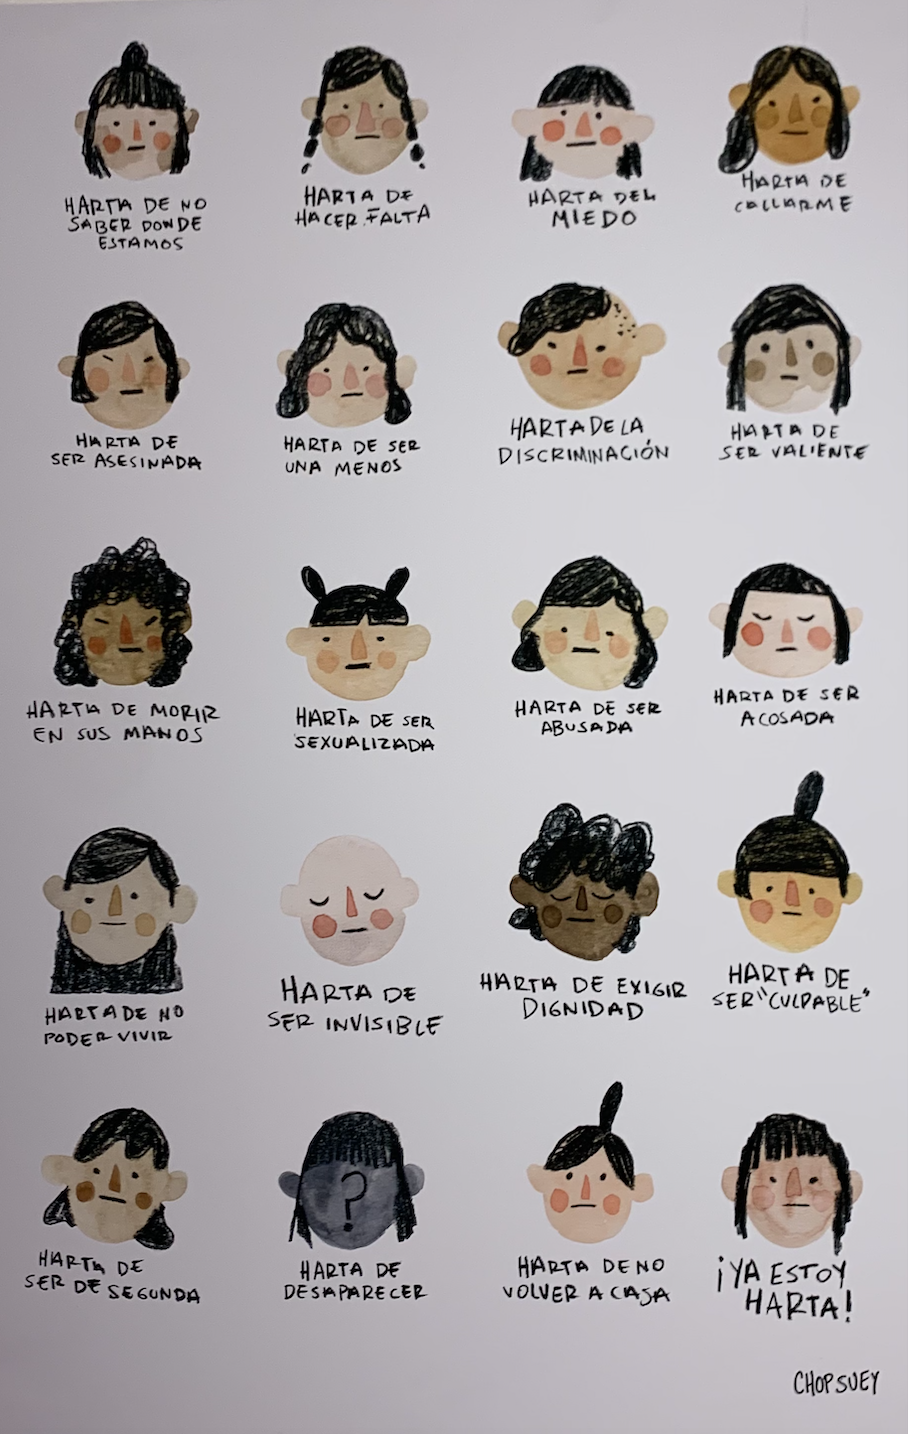 HARTA DE NO
SABER DONDE
ESTAMOS
HARTA DE
HACER FALTA
HARTA DEL
MIEDO
HARTA DE
CALLARME
HARTA DE
SER ASESINADA
HARTA DE SER
UNA MENOS
HARTA DE LA
DISCRIMINACIÓN
HARTA DE
SER VALIENTE
HARTA DE MORIR
EN SUS MANOS
HARTA DE SER
SEXUALIZADA
HARTA DE SER
ABUSADA
HARTA DE SER
ACOSADA
HARTA DE NO
PODER VIVIR
HARTA DE
SER INVISIBLE
HARTA DE EXIGIR
DIGNIDAD
HARTA DE
SER "CULPABLE"
HARTA DE
SER DE SEGUNDA
?
HARTA DE
DESAPARECER
HARTA DE NO
VOLVER A CASA
¡YA ESTOY
HARTA!
CHOPSUEY